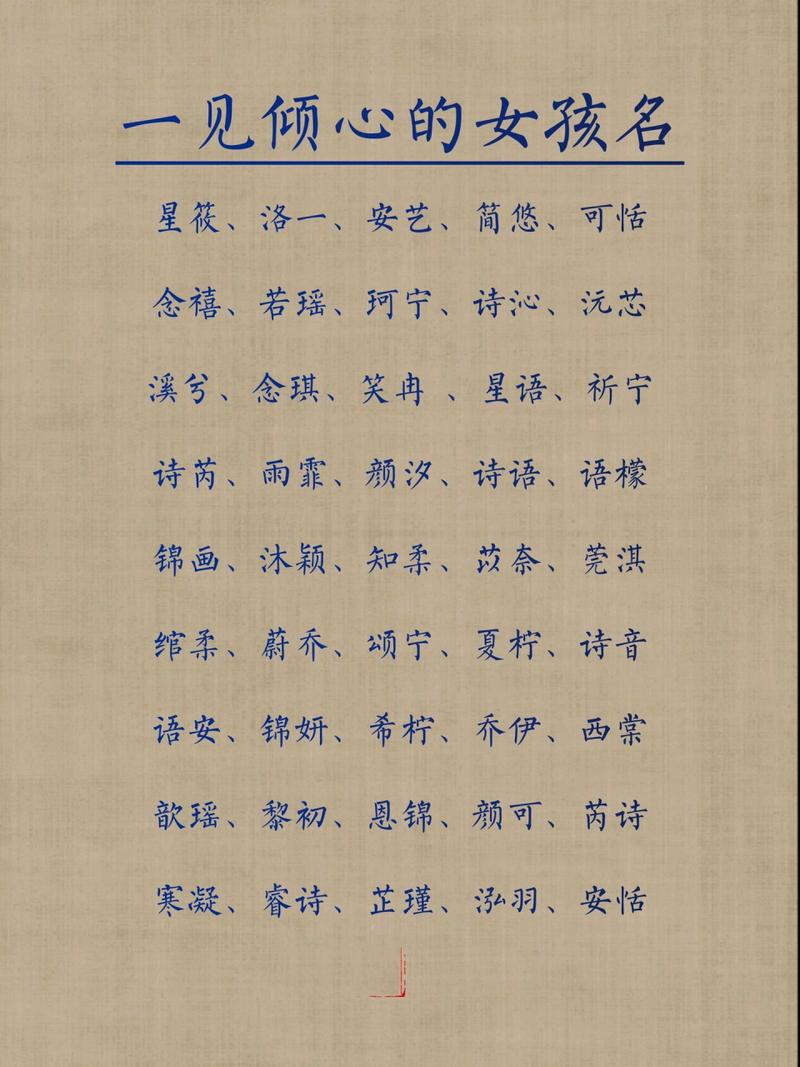 一见倾心的女孩名
星筱、洛一、安艺、简悠、可恬
念禧、若瑶、珂宁、诗沁、沅芯
溪兮、念琪、笑冉 、星语、祈宁
诗芮、雨霏、颜汐、诗语、语檬
锦画、沐颖、知柔、苡奈、莞淇
绾柔、蔚乔、颂宁、夏柠、诗音
语安、锦妍、希柠、乔伊、西棠
歆瑶、黎初、恩锦、颜可、芮诗
寒凝、睿诗、芷瑾、泓羽、安恬